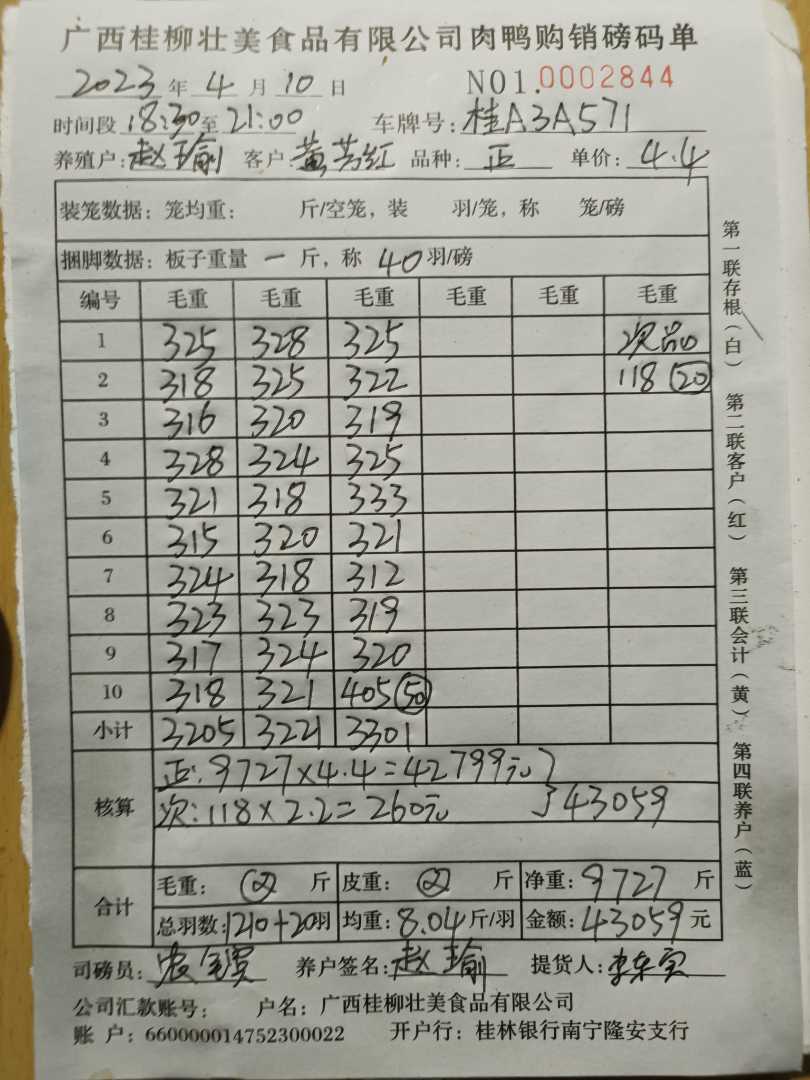 广西桂柳壮美食品有限公司肉鸭购销磅码单
2023年4月10日 NO1.0002844
时间段18:30至21:00 车牌号:桂A3A571
养殖户:赵瑜 客户:黄芳红 品种:正 单价:4.4
装笼数据:笼均重: 斤/空笼,装 羽/笼,称 笼/磅
捆脚数据:板子重量 一 斤,称 40羽/磅
编号 毛重 毛重 毛重 毛重 毛重 毛重
1 325 328 325 次品
2 318 325 322 118 (20)
3 316 320 319
4 328 324 325
5 321 318 333
6 315 320 321
7 324 318 312
8 323 323 319
9 317 324 320
10 318 321 405 (50)
小计 3205 3221 3301
核算 正:9727×4.4=42799元
次:118×2.2=260元 }43059
合计 毛重: 斤 皮重: 斤 净重:9727斤
总羽数:1210+20羽 均重:8.04斤/羽 金额:43059元
司磅员: 养户签名:赵瑜 提货人:
公司汇款账号: 户名:广西桂柳壮美食品有限公司
账 户:660000014752300022 开户行:桂林银行南宁隆安支行
第一联存根(白) 第二联客户(红) 第三联会计(黄) 第四联养户(蓝)